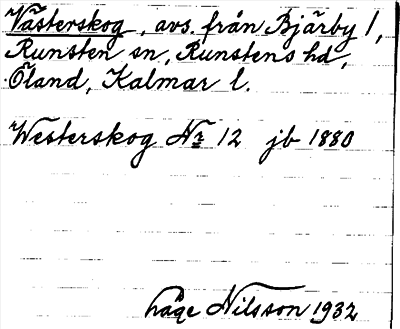 Västerskog, avs. från Bjärby 1,
Runsten sn, Runstens hd,
Öland, Kalmar l.
Westerskog Nr 12 jb 1880
Håge Nilsson 1932